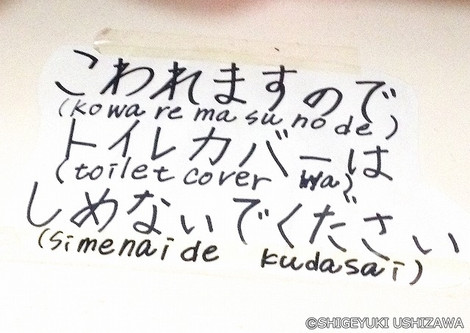 こわれますので
(kowa re ma su no de)
トイレカバーは
(toilet cover wa)
しめないでください
(simenai de kudasai)
©SHIGEYUKI USHIZAWA